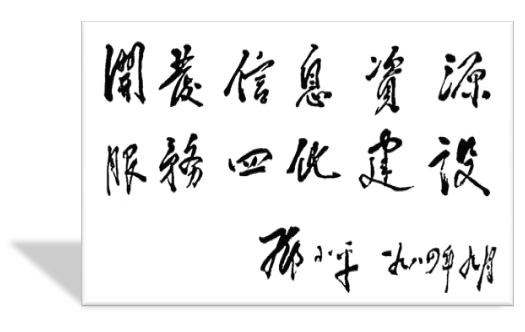 開发信息資源
服務四化建設
邓小平 一九八四年九月